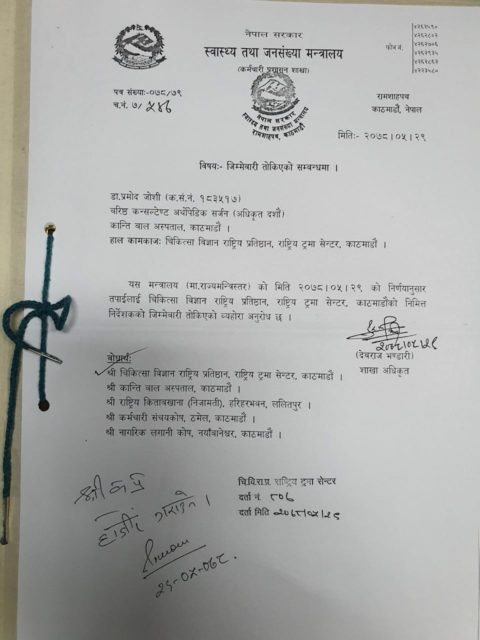 नेपाल सरकार
स्वास्थ्य तथा जनसंख्या मन्त्रालय
(कर्मचारी प्रशासन शाखा)
फोन नं.
४२६२५९०
४२६२८०२
४२६२७०६
४२६२९३५
४२६२८६२
४२२३५८०
पत्र संख्याः-०७८/७९
च.नं. ७/५४६
नेपाल सरकार
स्वास्थ्य तथा जनसंख्या मन्त्रालय
रामशाहपथ, काठमाडौं
रामशाहपथ
काठमाडौं, नेपाल
मितिः- २०७८।०५।२९
विषयः- जिम्मेवारी तोकिएको सम्बन्धमा ।
डा.प्रमोद जोशी (क.सं.नं. १८३५१७)
वरिष्ठ कन्सल्टेण्ट अर्थोपेडिक सर्जन (अधिकृत दशौं)
कान्ति बाल अस्पताल, काठमाडौं ।
हाल कामकाजः चिकित्सा विज्ञान राष्ट्रिय प्रतिष्ठान, राष्ट्रिय ट्रमा सेन्टर, काठमाडौं ।
यस मन्त्रालय (मा.राज्यमन्त्रिस्तर) को मिति २०७८।०५।२९ को निर्णयानुसार
तपाईलाई चिकित्सा विज्ञान राष्ट्रिय प्रतिष्ठान, राष्ट्रिय ट्रमा सेन्टर, काठमाडौंको निमित्त
निर्देशकको जिम्मेवारी तोकिएको व्यहोरा अनुरोध छ ।
२०७८/०५/२९
(देवराज भण्डारी)
शाखा अधिकृत
बोधार्थः
श्री चिकित्सा विज्ञान राष्ट्रिय प्रतिष्ठान, राष्ट्रिय ट्रमा सेन्टर, काठमाडौं ।
श्री कान्ति बाल अस्पताल, काठमाडौं ।
श्री राष्ट्रिय किताबखाना (निजामती), हरिहरभवन, ललितपुर ।
श्री कर्मचारी संचयकोष, ठमेल, काठमाडौं ।
श्री नागरिक लगानी कोष, नयाँबानेश्वर, काठमाडौं ।
चि.वि.रा.प्र. राष्ट्रिय ट्रमा सेन्टर
दर्ता नं १०६
दर्ता मिति २०७८/०५/२९
हाजिर गराउने ।
२९-०५-०७८.